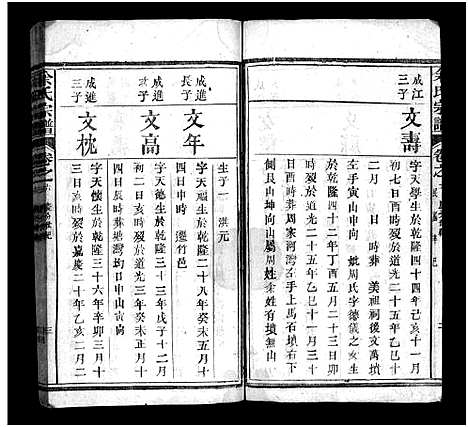 余氏宗譜
卷之
成江三子
文壽
字天學生於乾隆四十四年己亥
初七日酉時歿於道光二十五年
月 日 時葬 美祖祠後文萬墳
左手寅山申向 娶周氏字德儀之女生
於乾隆四十二年丁酉五月二十三日卯
時歿於道光二十五年乙巳十一月三十
日戌時葬周家河灣左手上馬石墳右下
艮山坤向山屬周姓余姓有墳無
生子一 洪元
成進長子
文年
字天 生於乾隆二十八年癸未五月十
四日申時 遷竹邑
成進次子
文高
字天德生於乾隆三十三年戊子十二月
初二日亥時歿於道光三年癸未正月十
四日戌時葬塘灣均日申山寅向
成進三子
文枕
字天懷生於乾隆三十六年辛卯三月十
三日亥時歿於嘉慶二十年乙亥二月二
余氏宗譜
卷之